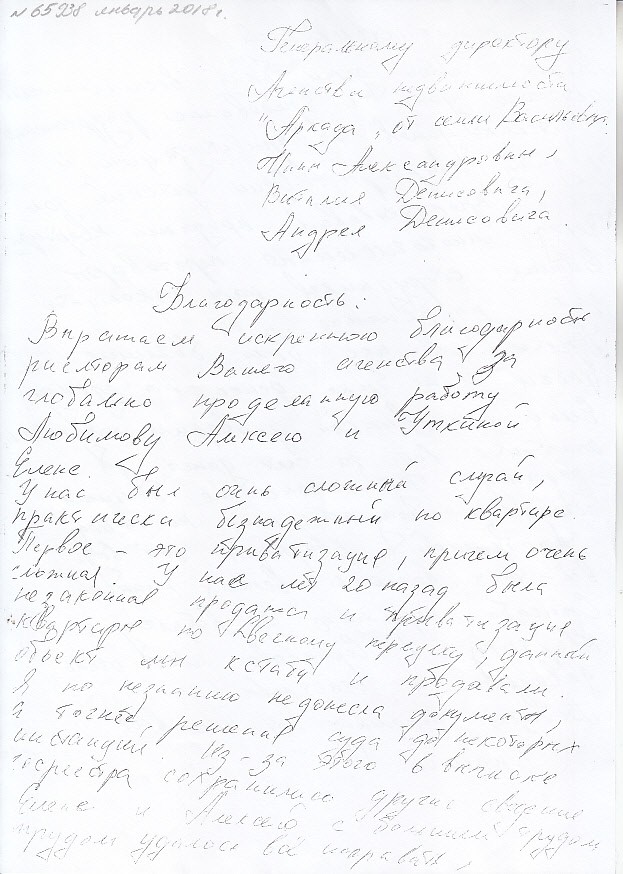 № 65938 январь 2018г.
Генеральному директору
Агенства недвижимости
"Аркада" от семьи Васильевых
Нины Александровны,
Виталия Денисовича,
Андрея Денисовича.
Благодарность:
Выражаем искреннюю благодарность
риелторам Вашего агенства за
глобально проделанную работу
Любимову Алексею и Уткиной
Елене.
У нас был очень сложный случай,
практически безнадежный по квартире.
Первое – это приватизация, причем очень
сложная. У нас лет 20 назад была
незаконная продажа и приватизация
квартиры по переулку, данный
объект мы кстати и продавали.
Я по незнанию недонесла документы,
а точнее, решения суда до некоторых
инстанций. Из-за этого в выписке
госреестра сохранились другие сведения
Елене и Алексею с большим трудом
трудом удалось всё исправить,